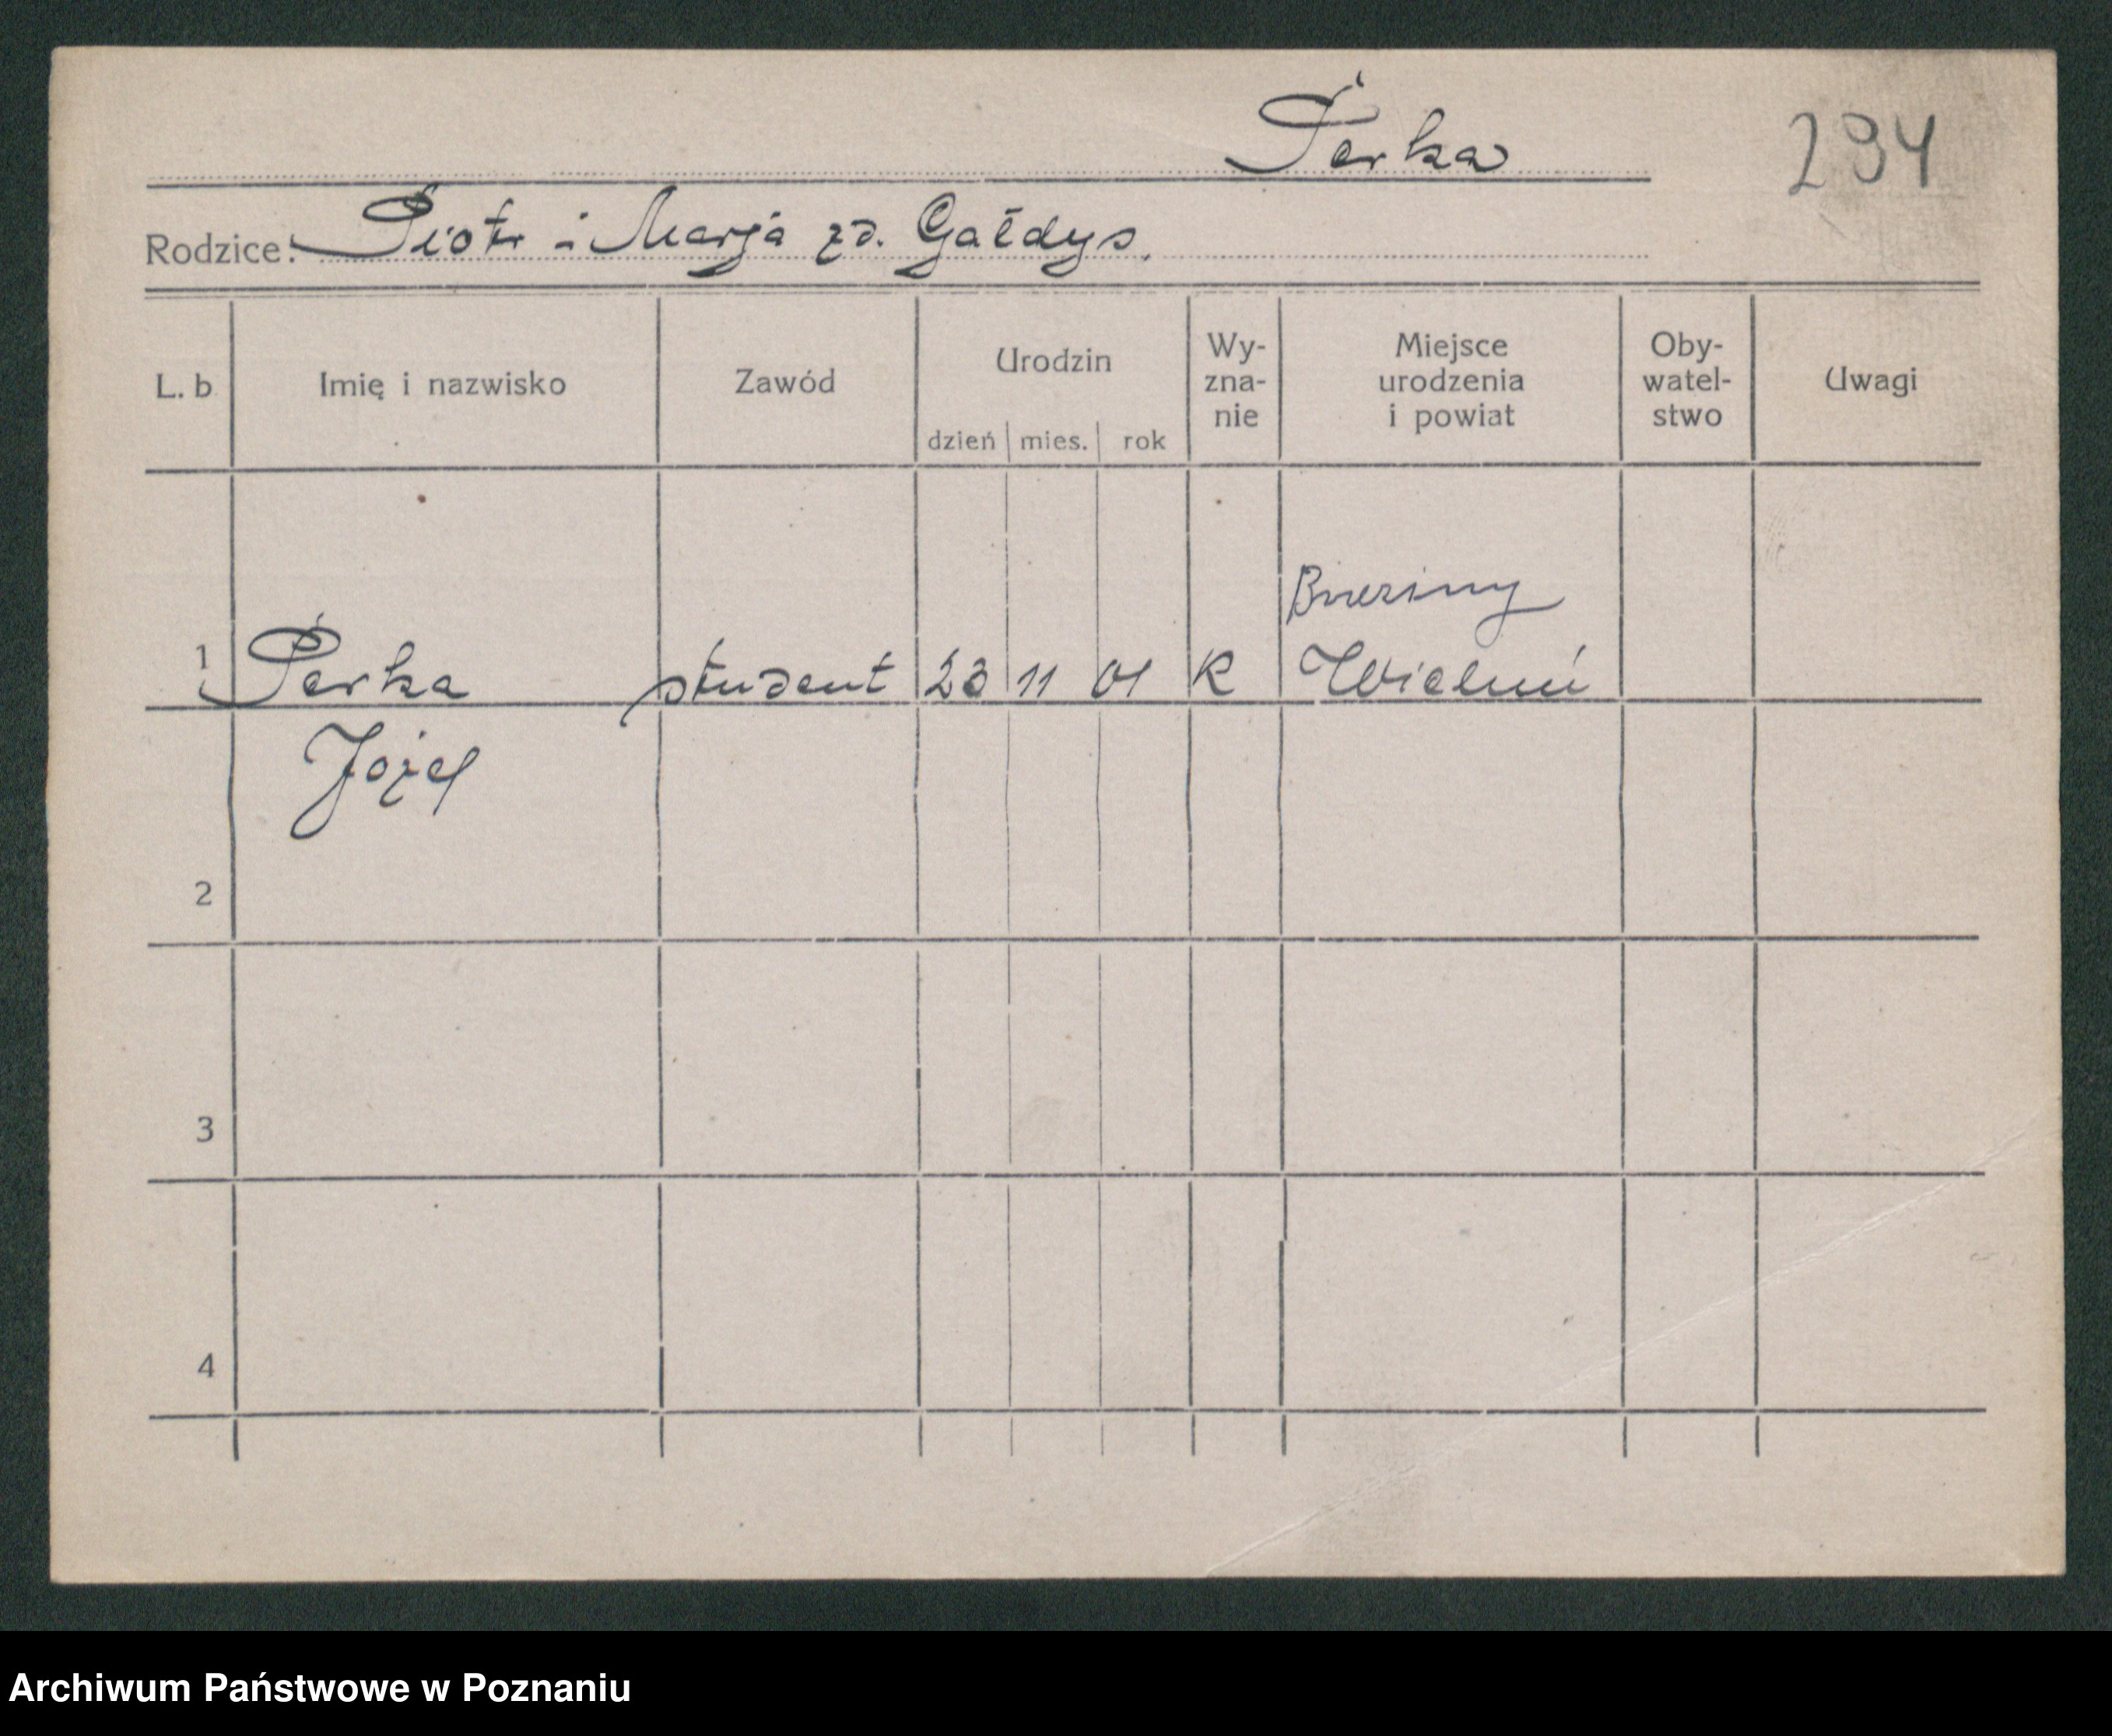 Perka
294
Rodzice: Piotr i Marja zd. Gałdys.
L. b Imię i nazwisko Zawód Urodzin dzień mies. rok Wy-zna-nie Miejsce urodzenia i powiat Oby-watel-stwo Uwagi
1 Perka student 23 11 01 K Wieluń
Józef
2
3
4
Archiwum Państwowe w Poznaniu